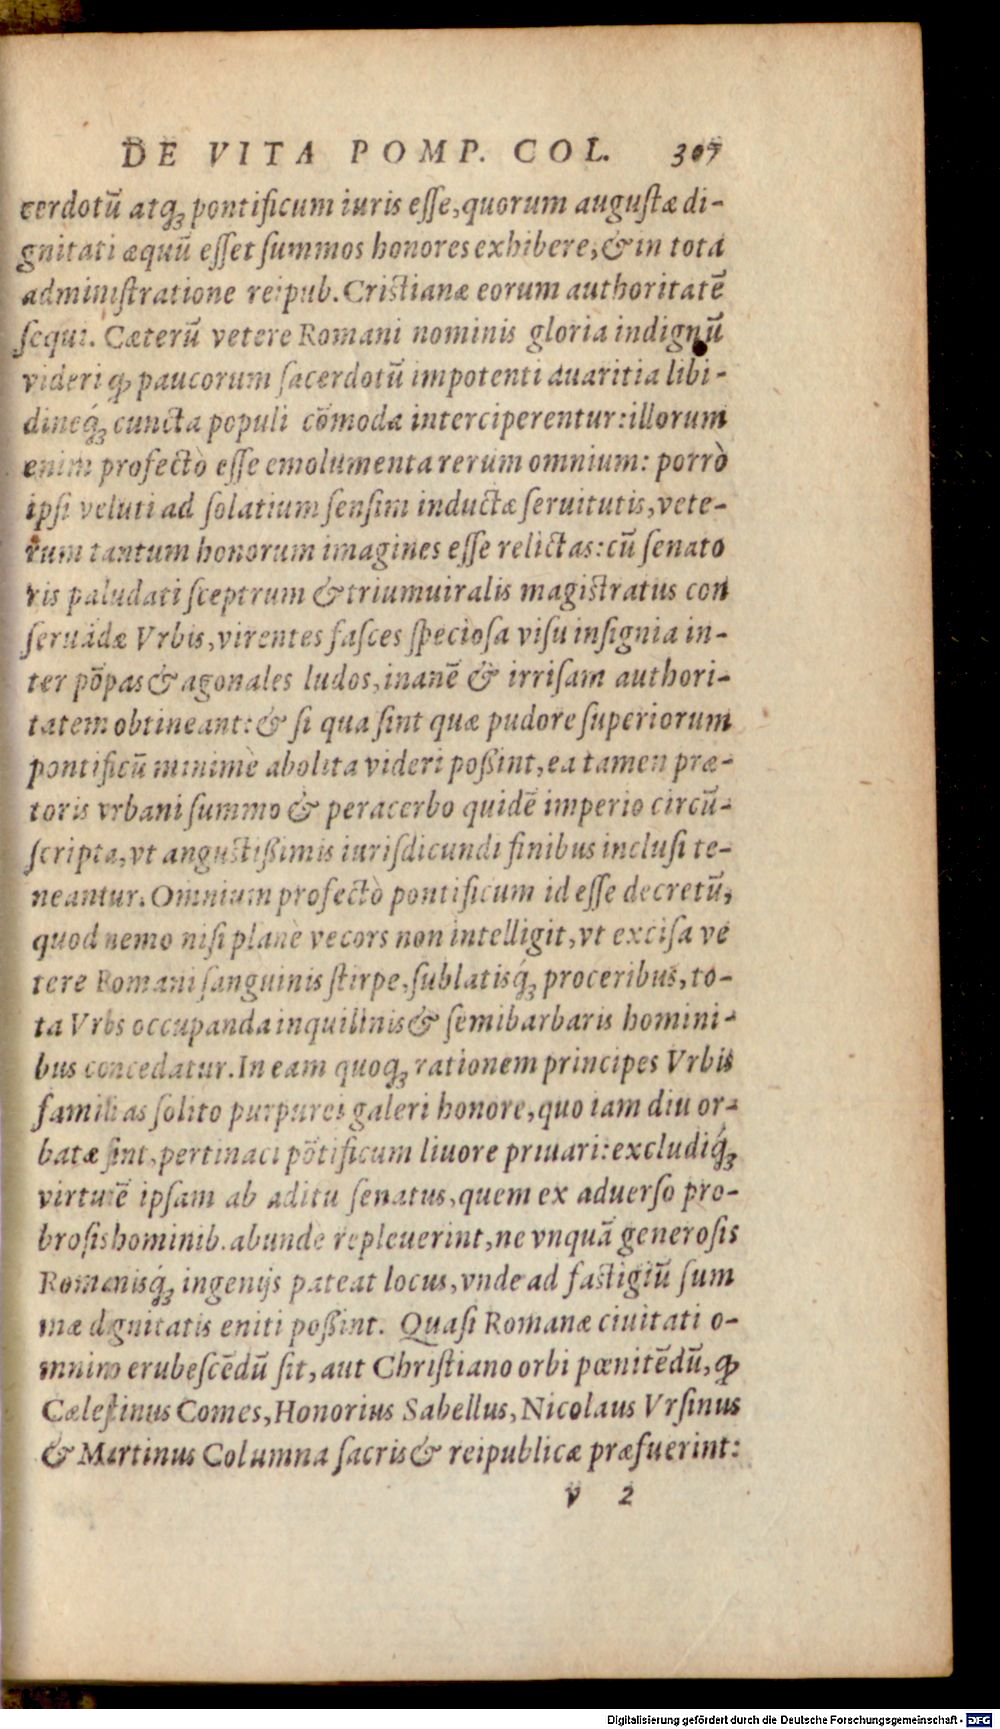 DE VITA POMP. COL. 307
cerdotũ atq́ꝫ pontificum iuris eſſe, quorum auguſtæ di-
gnitati æquũ eſſet ſummos honores exhibere, & in tota
adminiſtratione reipub. Criſtianæ eorum authoritatẽ
ſequi. Cæterũ vetere Romani nominis gloria indignũ
videri ꝙ paucorum ſacerdotũ impotenti auaritia libi-
dineq́ꝫ cuncta populi cõmoda interciperentur: illorum
enim profectò eſſe emolumenta rerum omnium: porrò
ipſi veluti ad ſolatium ſenſim inductæ ſeruitutis, vete-
rum tantum honorum imagines eſſe relictas: cũ ſenato
ris paludati ſceptrum & triumuiralis magiſtratus con
ſeruãdæ Vrbis, virentes faſces ſpecioſa viſu inſignia in-
ter põpas & agonales ludos, inanẽ & irriſam authori-
tatem obtineant: & ſi qua ſint quæ pudore ſuperiorum
pontificũ minimè abolita videri poßint, ea tamen præ-
toris vrbani ſummo & peracerbo quidẽ imperio circũ-
ſcripta, vt anguſtißimis iuriſdicundi finibus incluſi te-
neantur. Omnium profectò pontificum id eſſe decretũ,
quod nemo niſi planè vecors non intelligit, vt exciſa ve
tere Romani ſanguinis ſtirpe, ſublatisq́ꝫ proceribus, to-
ta Vrbs occupanda inquilinis & ſemibarbaris homini-
bus concedatur. In eam quoqꝫ rationem principes Vrbis
familias ſolito purpurei galeri honore, quo iam diu or-
batæ ſint, pertinaci põtificum liuore priuari: excludiq́ꝫ
virtutẽ ipſam ab aditu ſenatus, quem ex aduerſo pro-
broſis hominib. abunde repleuerint, ne vnquã generoſis
Romanisq́ꝫ ingenijs pateat locus, vnde ad faſtigiũ ſum
mæ dignitatis eniti poßint. Quaſi Romanæ ciuitati o-
mnino erubeſcẽdũ ſit, aut Chriſtiano orbi pœnitẽdũ, ꝙ
Cæleſtinus Comes, Honorius Sabellus, Nicolaus Vrſinus
& Martinus Columna ſacris & reipublicæ præfuerint:
v 2
Digitalisierung gefördert durch die Deutsche Forschungsgemeinschaft - DFG